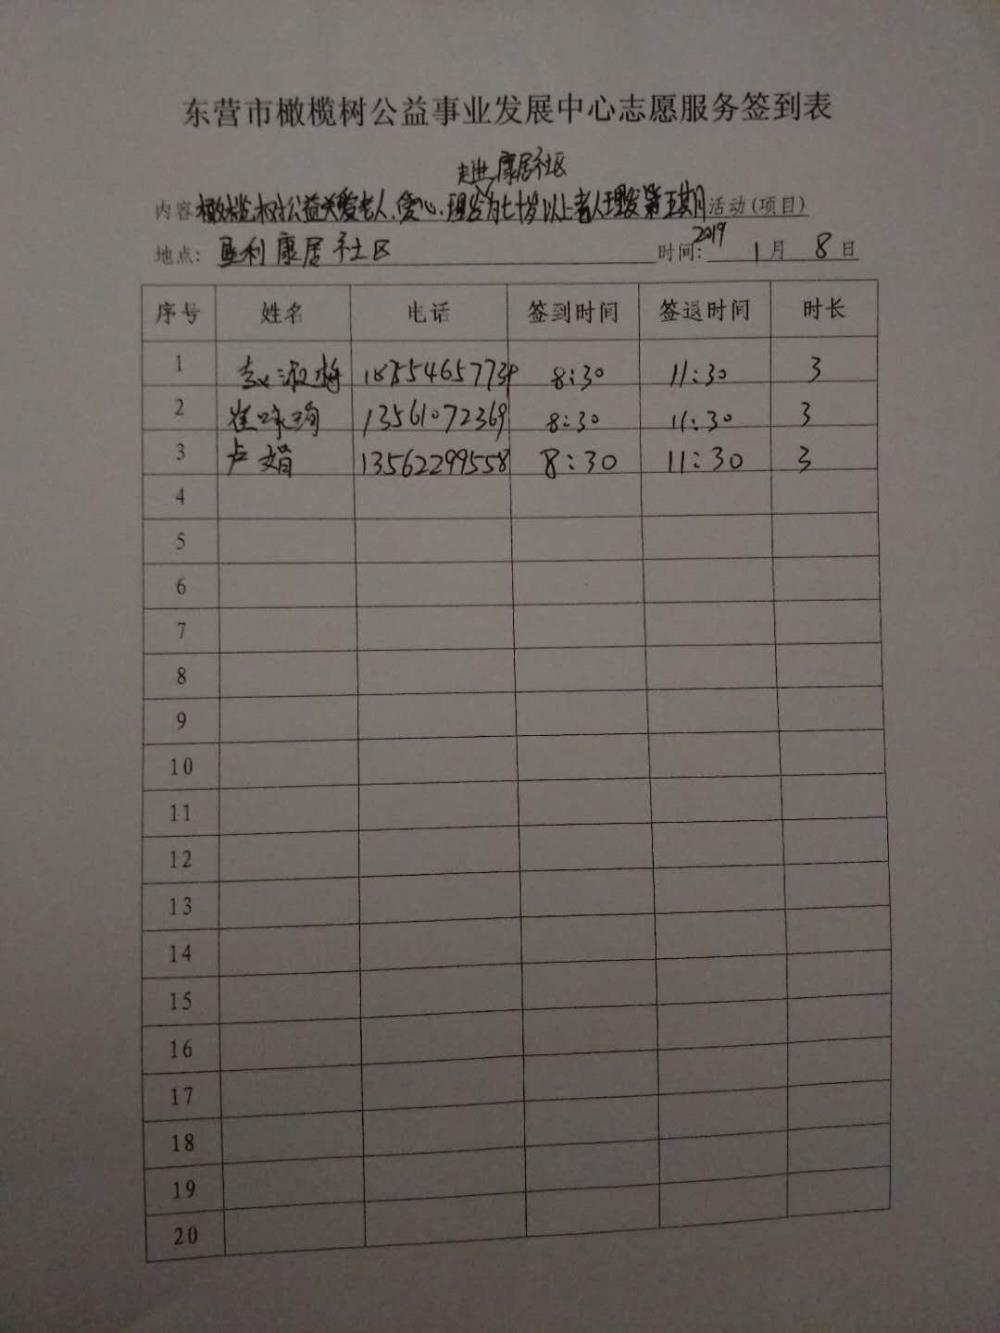 东营市橄榄树公益事业发展中心志愿服务签到表
走进康居社区
内容:橄榄树公益关爱老人.爱心.理发为七十岁以上老人理发第五期活动(项目)
地点: 垦利康居社区 时间: 2019 1月 8日
序号 姓名 电话 签到时间 签退时间 时长
1 赵淑梅 1885465773 8:30 11:30 3
2 崔 13561072369 8:30 11:30 3
3 卢娟 13562299558 8:30 11:30 3
4
5
6
7
8
9
10
11
12
13
14
15
16
17
18
19
20